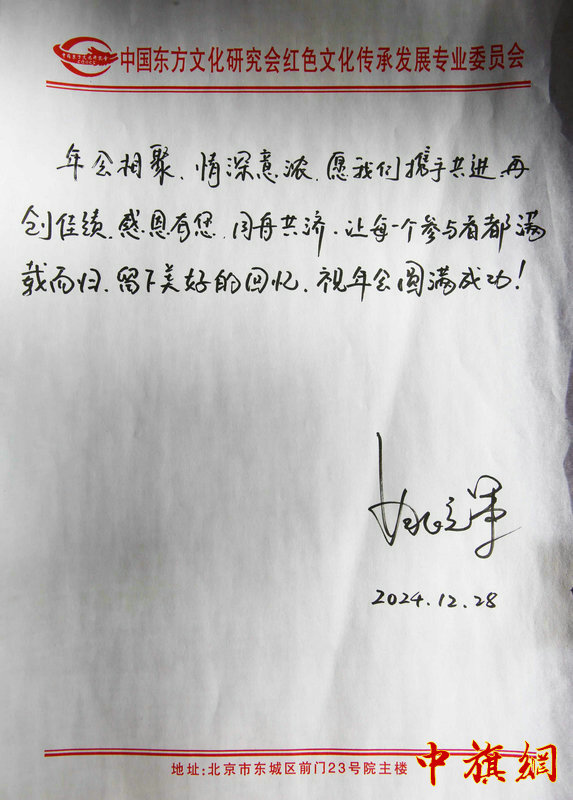 中国东方文化研究会红色文化传承发展专业委员会
年会相聚、情深意浓、愿我们携手共进、再
创佳绩、感恩有您、同舟共济、让每一个参与者都满
载而归、留下美好的回忆、祝年会圆满成功！
2024.12.28
地址:北京市东城区前门23号院主楼
中旗網